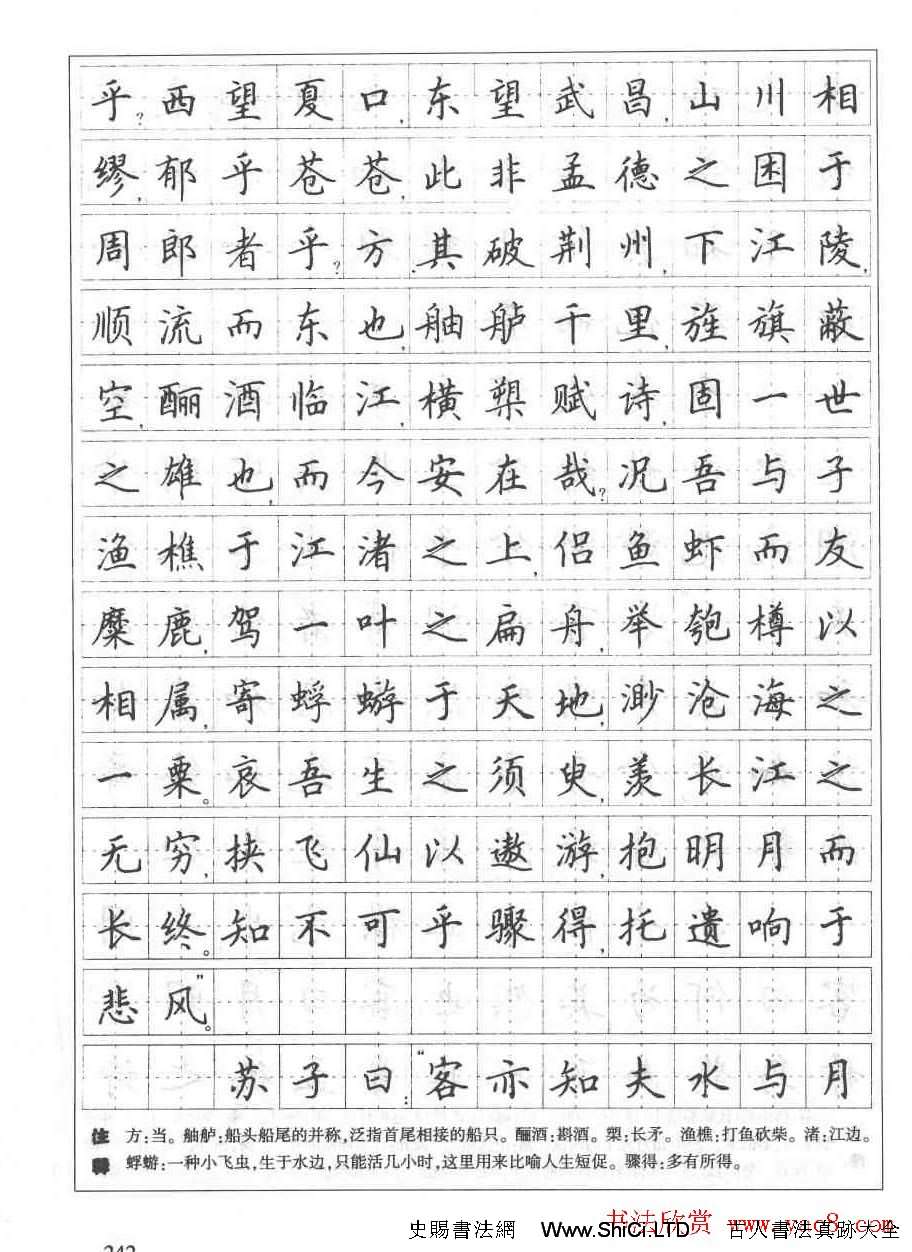 乎?西望夏口,东望武昌,山川相
缪,郁乎苍苍,此非孟德之困于
周郎者乎?方其破荆州,下江陵,
顺流而东也,舳舻千里,旌旗蔽
空,酾酒临江,横槊赋诗,固一世
之雄也,而今安在哉?况吾与子
渔樵于江渚之上,侣鱼虾而友
麋鹿,驾一叶之扁舟,举匏樽以
相属,寄蜉蝣于天地,渺沧海之
一粟。哀吾生之须臾,羡长江之
无穷,挟飞仙以遨游,抱明月而
长终。知不可乎骤得,托遗响于
悲风。”
苏子曰:“客亦知夫水与月
注 方:当。舳舻:船头船尾的并称,泛指首尾相接的船只。酾酒:斟酒。槊:长矛。渔樵:打鱼砍柴。渚:江边。
释 蜉蝣:一种小飞虫,生于水边,只能活几小时,这里用来比喻人生短促。骤得:多有所得。
书法欣赏 www.yac8.com
史賜書法網 Www.ShiCi.LTD 古人書法真跡大全
242